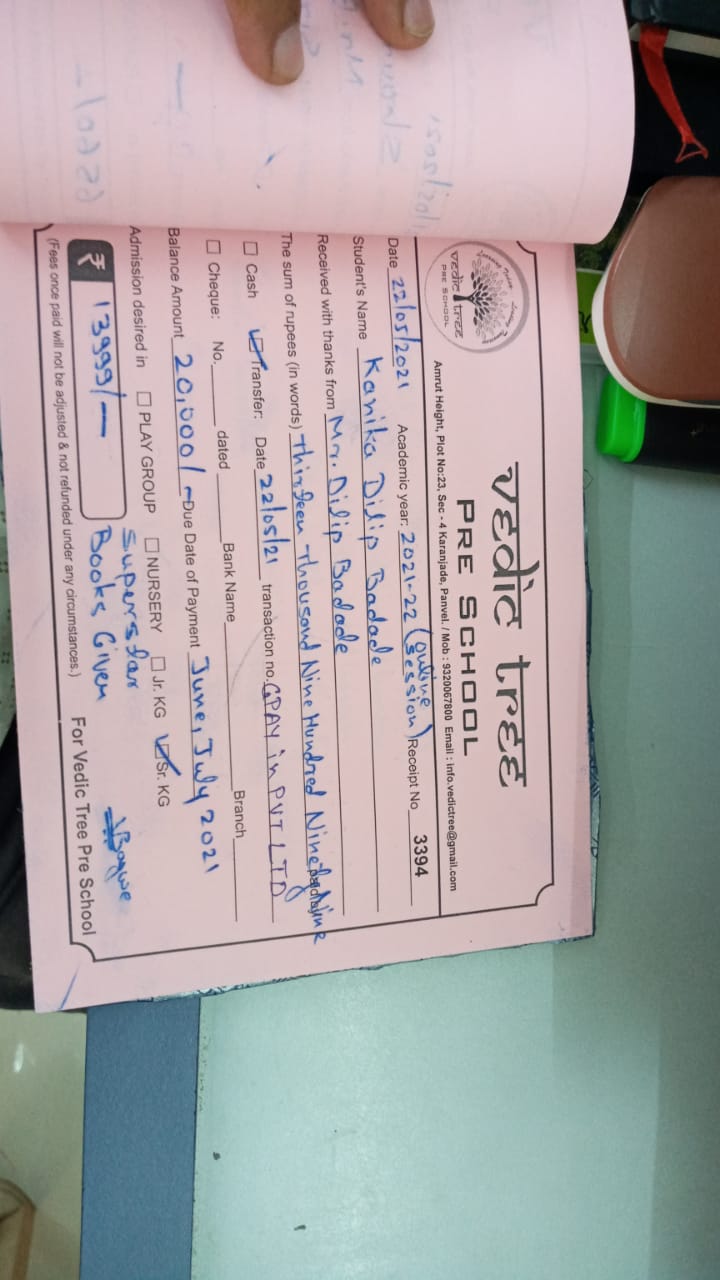 vedic tree
PRE SCHOOL
vedic tree
PRE SCHOOL
Amrut Height, Plot No:23, Sec - 4 Karanjade, Panvel. / Mob : 9320067800 Email : info.vedictree@gmail.com
Date 22/05/2021 Academic year: 2021-22 (online session) Receipt No 3394
Student's Name Kanika Dilip Badade
Received with thanks from Mr. Dilip Badade
The sum of rupees (in words) Thirteen Thousand Nine Hundred Ninety Nine
☐ Cash ☑ Transfer: Date 22/05/21 transaction no. GPAY in PVT LTD
☐ Cheque: No. dated Bank Name Branch
Balance Amount 20,000/- Due Date of Payment June, July 2021
Admission desired in ☐ PLAY GROUP ☐ NURSERY ☐ Jr. KG ☑ Sr. KG
Superstar
₹ 13999/- Books Given
(Fees once paid will not be adjusted & not refunded under any circumstances.) For Vedic Tree Pre School